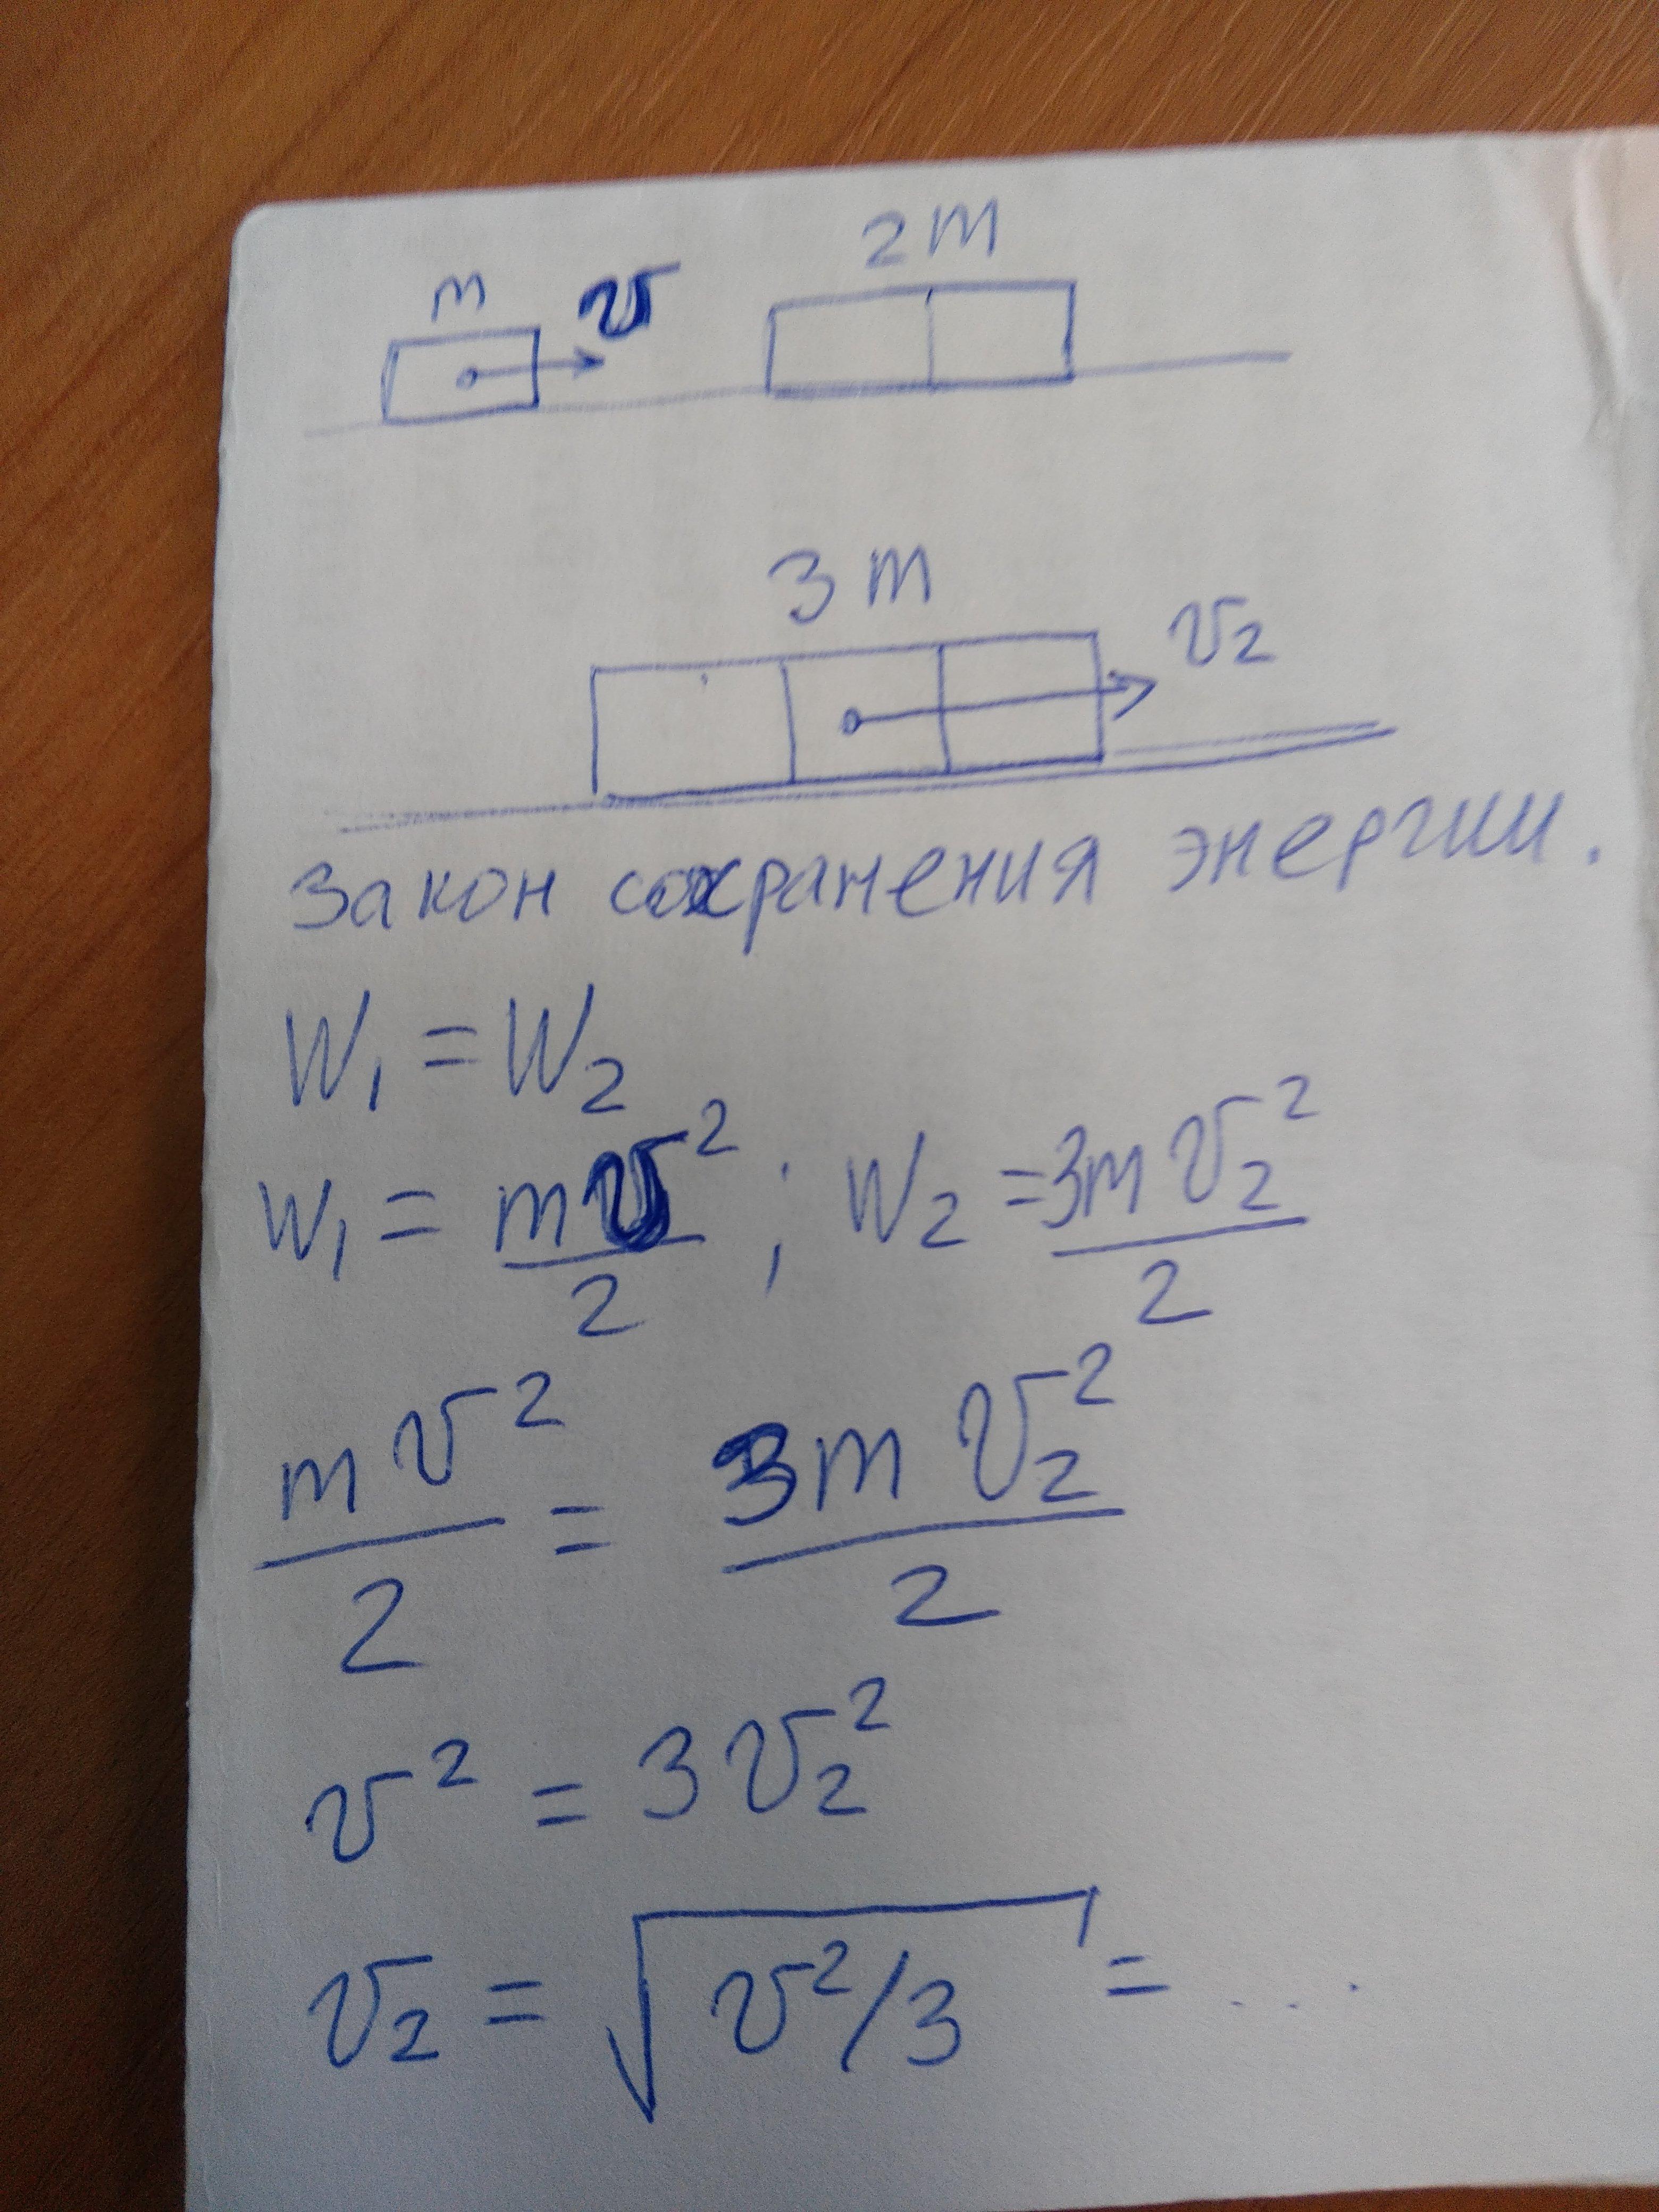 m v 2m
3m v₂
Закон сохранения энергии.
W₁ = W₂
W₁ = mv²/2 ; W₂ = 3mv₂²/2
mv²/2 = 3mv₂²/2
v² = 3v₂²
v₂ = √(v²/3) = ...